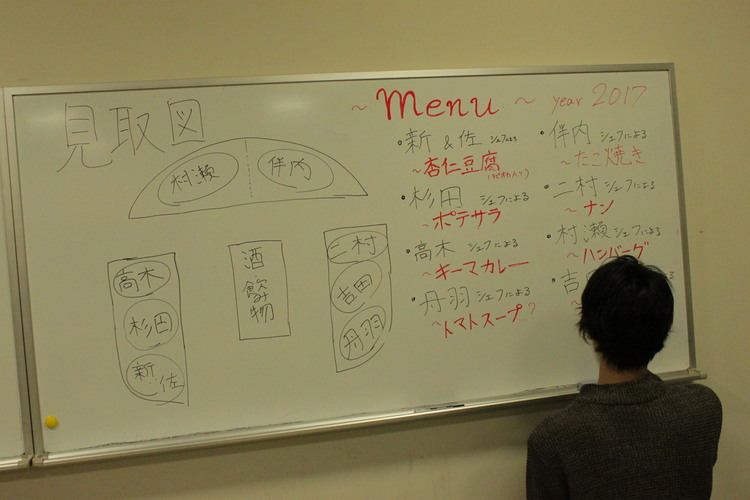 見取図
村瀬
伴内
高木
杉田
新 佐
酒
飲み物
二村
吉田
丹羽
~ Menu ~ year 2017
・新 & 佐 シェフによる
~杏仁豆腐
・杉田 シェフによる
~ポテサラ
・高木 シェフによる
~キーマカレー
・丹羽 シェフによる
~トマトスープ?
・伴内 シェフによる
~たこ焼き
・二村 シェフによる
~ナン
・村瀬 シェフによる
~ハンバーグ
・吉